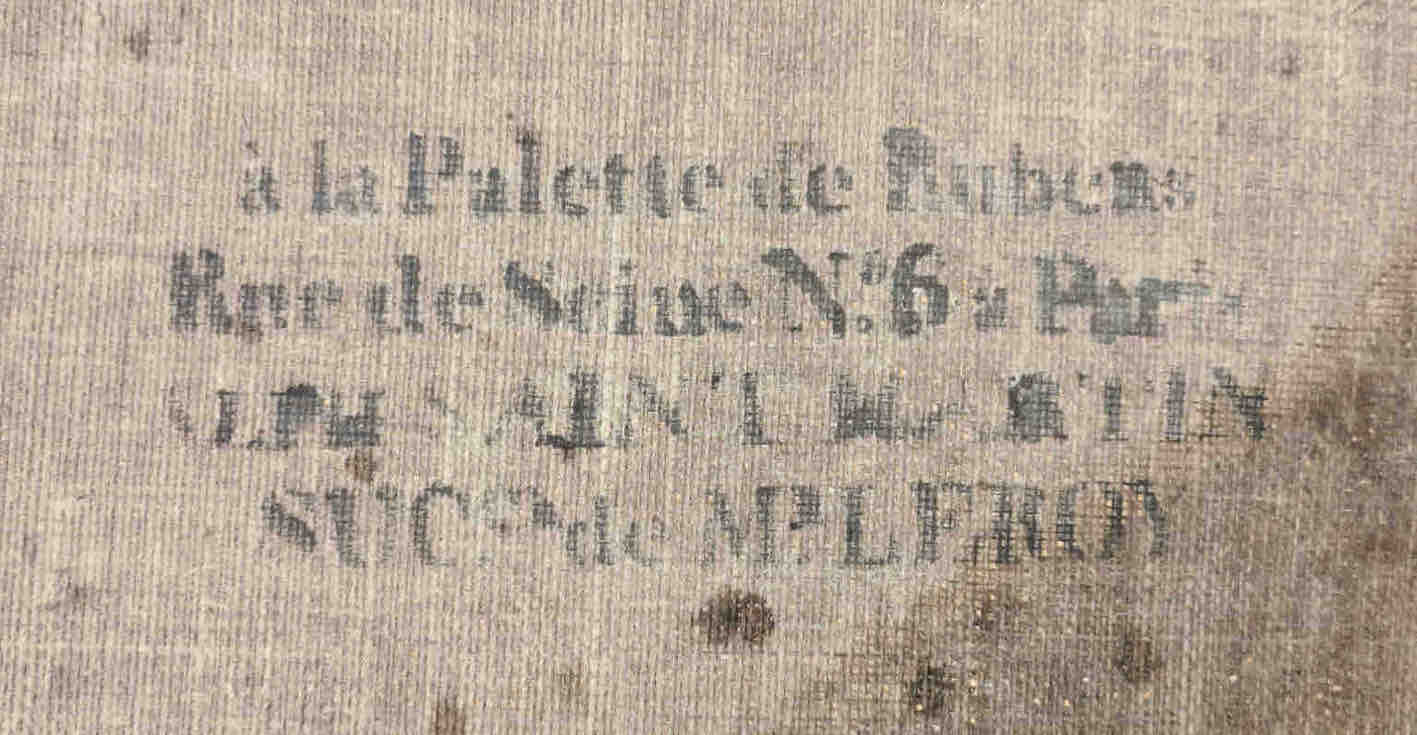 à la Palette de Rubens
Rue de Seine N.º 6 à Paris
SAINT MARTIN
SUC.R de M.R LEROY